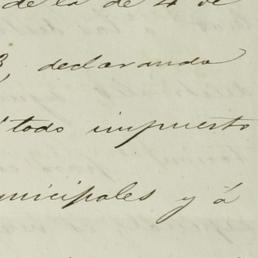 de la de 4 de
declarando
todo impuesto
municipales y á